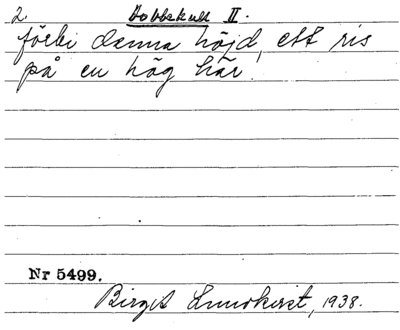 2. Dobbskull II.
förbi denna höjd, ett ris
på en hög här.
Nr 5499.
Birgit Lundkvist, 1938.